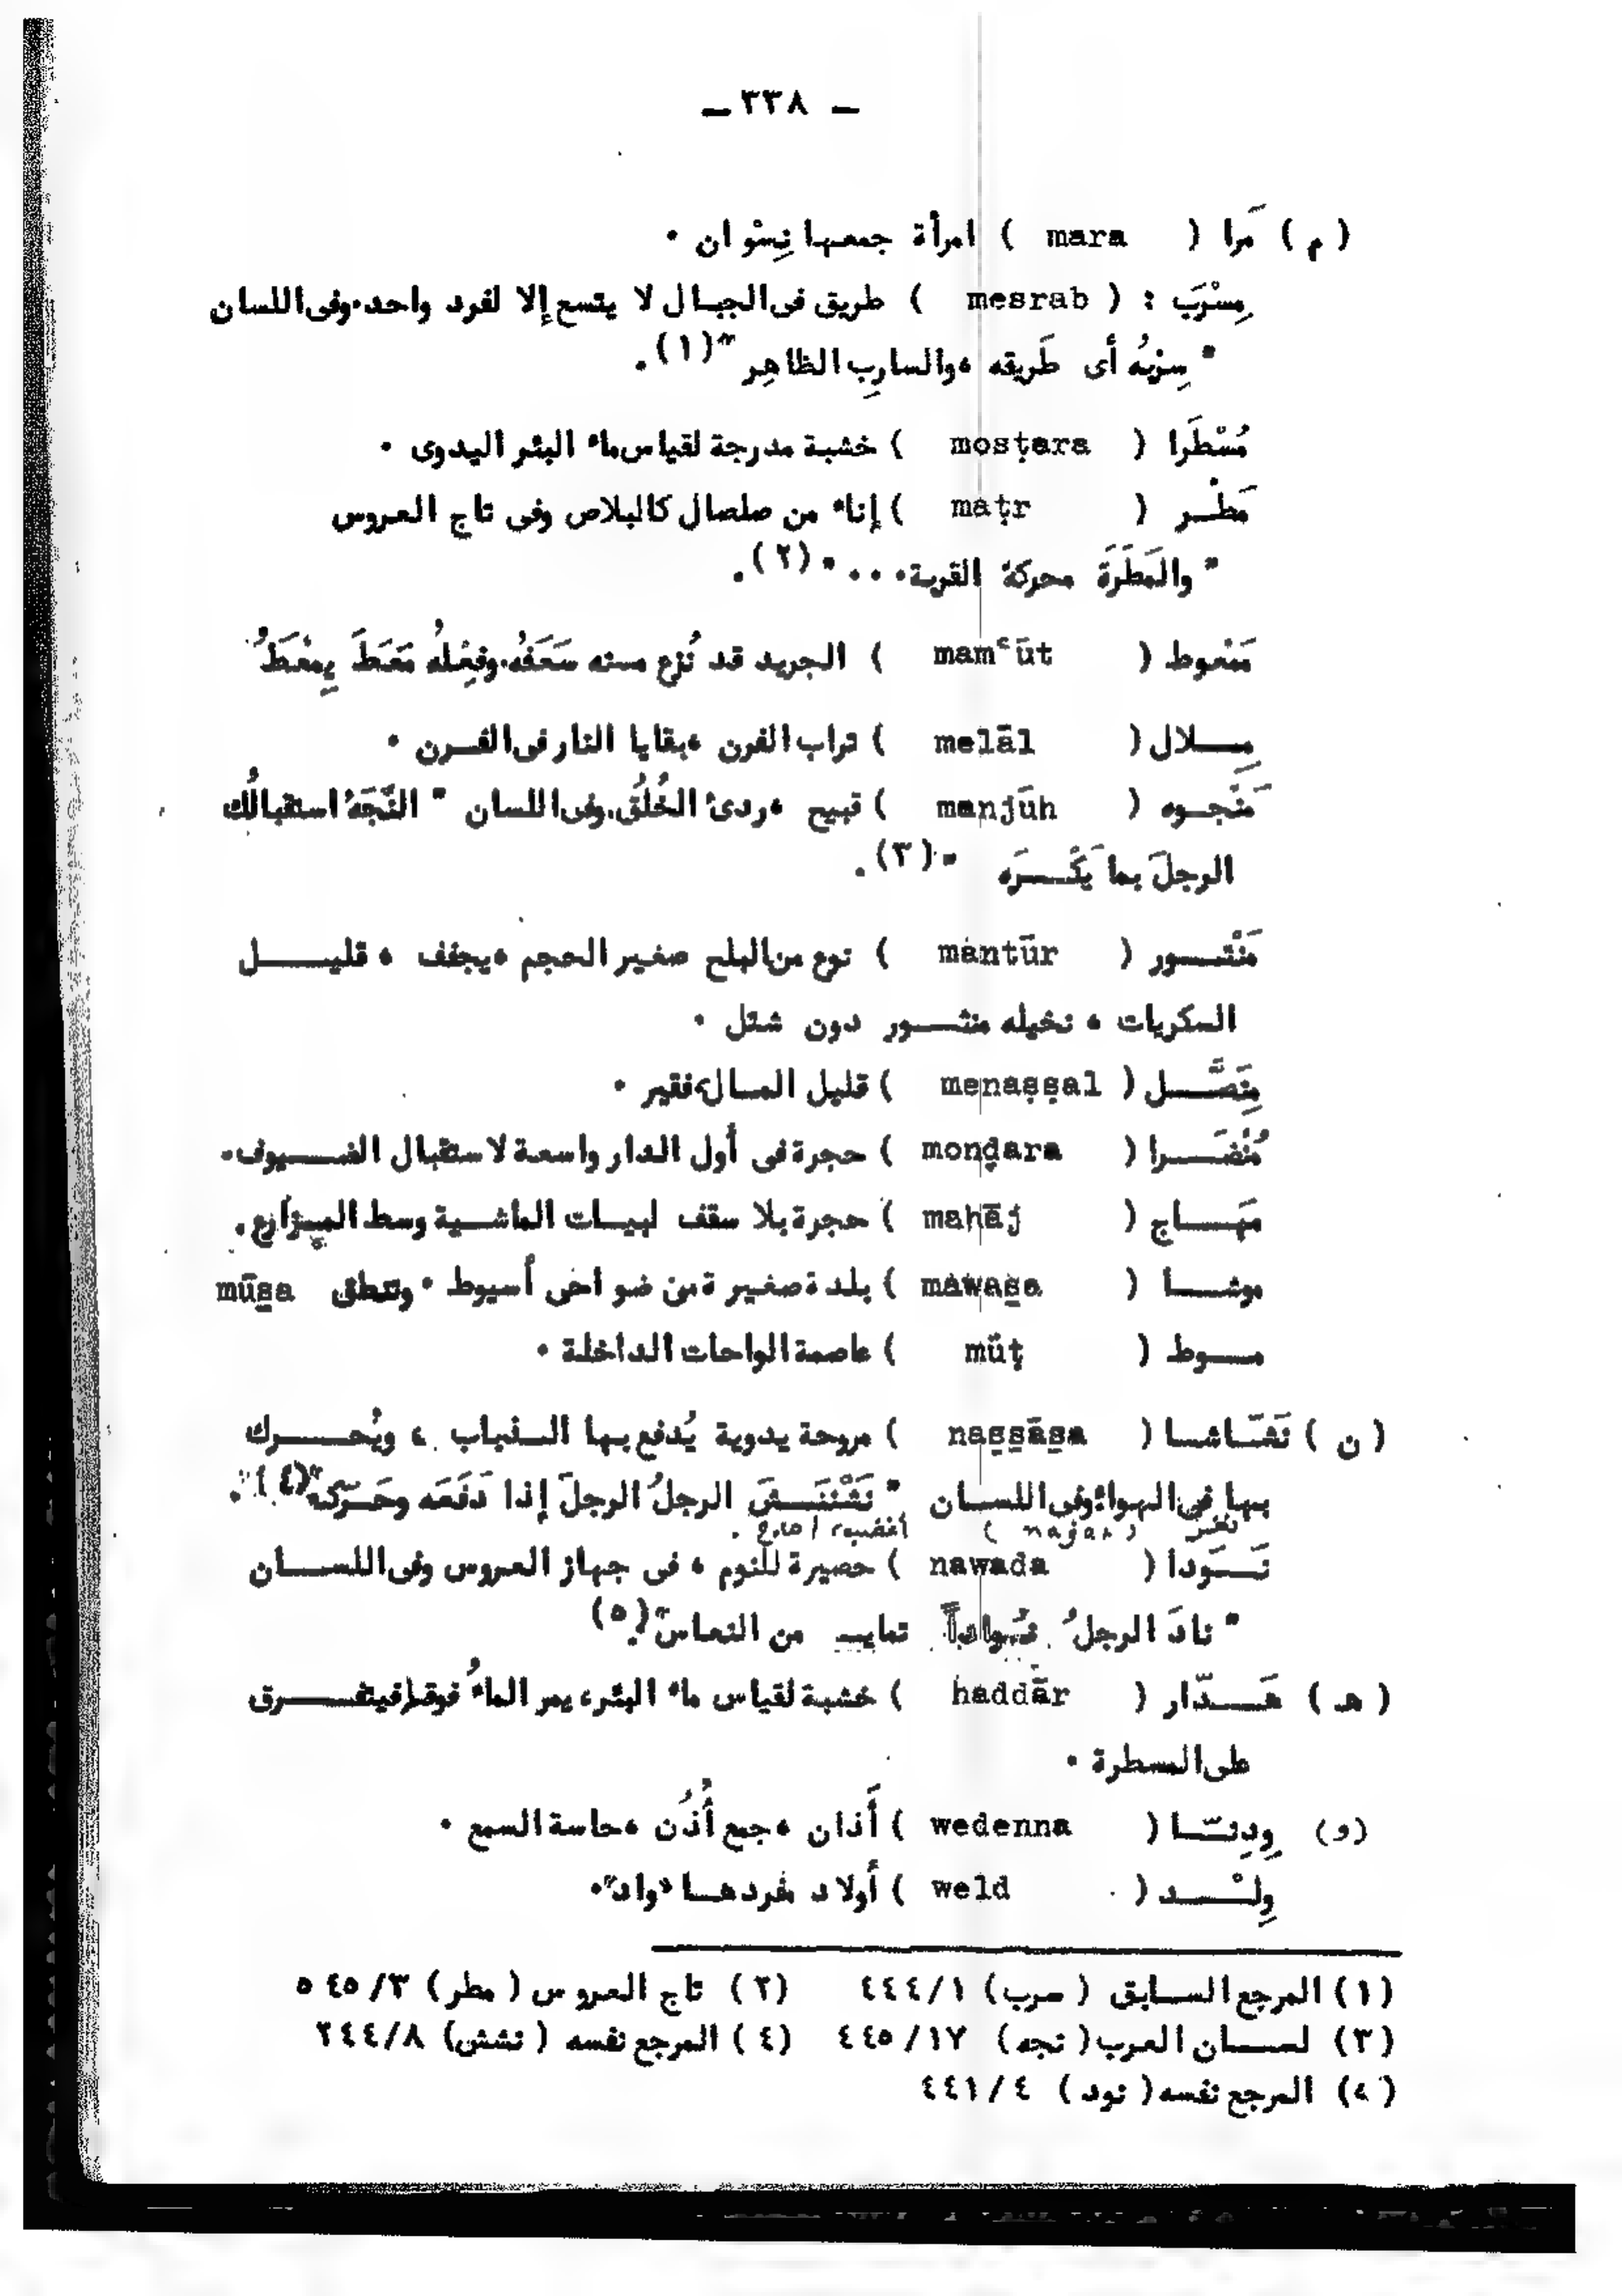 — ٣٣٨ —
( م ) مَرا ( mara ) امرأة جمعها نِسْوان .
مِسْرَب : ( mesrab ) طريق فى الجبال لا يتسع إلا لفرد واحد . وفى اللسان
" سِرْبُه أى طَريقه ، والسارِب الظاهِر " (١) .
مُسْطَرا ( mosṭara ) خشبة مدرجة لقياس ماء البئر اليدوى .
مَطْـر ( maṭr ) إناء من صلصال كالبلاص وفى تاج العروس
" والمَطَرَة محركة القربة . . . " (٢) .
مَمْعوط ( mamᶜūt ) الجريد قد نُزع منه سَعَفُه . وفِعْلُه مَعَطَ يِمْعَطُ
مِـلال ( melāl ) تراب الفرن ، بقايا النار فى الفرن .
مَنْجـوه ( manjūh ) قبيح ، ردئ الخُلُق . وفى اللسان " النَّجَهُ استقبالُك
الرجلَ بما يَكْـرَه " (٣) .
مَنْتـور ( mantūr ) نوع من البلح صغير الحجم ، يجفف ، قليـل
السكريات ، نخيله منثـور دون شتل .
مِنَصَّـل ( menaṣṣal ) قليل المال ، فقير .
مُنْضَـرا ( monḍara ) حجرة فى أول الدار واسعة لاستقبال الضـيوف .
مَهـاج ( mahāj ) حجرة بلا سقف لبيـات الماشـية وسط المـزارع .
موشـا ( mawas̱a ) بلدة صغيرة من ضواحى أسيوط . وتنطق mūs̱a
مـوط ( mūṭ ) عاصمة الواحات الداخلة .
( ن ) نَشّـاشا ( nas̱s̱ās̱a ) مروحة يدوية يُدفع بها الـذباب ، ويُحـرك
بها فى الهواء وفى اللسـان " نَشْنَـشَ الرجلُ الرجلَ إذا دَفَعَه وحَـرّكه " (٤) .
( najar )
نَـوَدا ( nawada ) حصيرة للنوم ، فى جهاز العروس وفى اللسـان
" نادَ الرجلُ نُواداً تمايـ من النعاس " (٥)
( هـ ) هَـدّار ( haddār ) خشبة لقياس ماء البئر ، يمر الماءُ فوقها فيتفـرق
على المسطرة .
( و ) وِدِنّـا ( wedenna ) أَذان ، جمع أُذُن ، حاسة السمع .
وِلْـد ( weld ) أولاد مفردهـا "واد" .
(١) المرجع السـابق ( سرب ) ٤٤٤/١ (٢) تاج العروس ( مطر ) ٥٤٥/٣
(٣) لسـان العرب ( نجه ) ٤٤٥/١٧ (٤) المرجع نفسه ( نشش ) ٢٤٤/٨
(٥) المرجع نفسه ( نود ) ٤٤١/٤